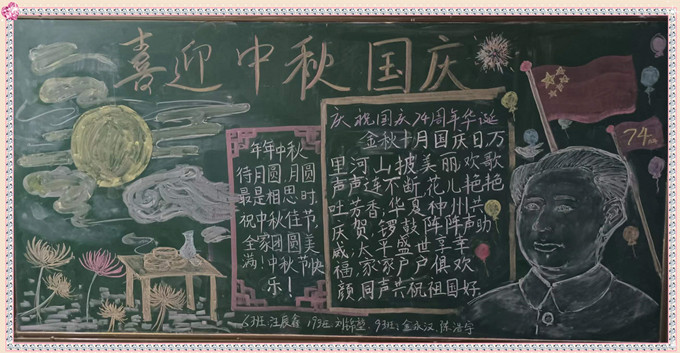 喜迎中秋国庆
年年中秋
待月圆,月圆
最是相思时,
祝中秋佳节,
全家团圆美
满!中秋节快
乐!
庆祝国庆74周年华诞
金秋十月国庆日,万
里河山披美丽,欢歌
声声连不断,花儿艳艳
吐芳香,华夏神州共
庆贺,锣鼓阵阵声助
威,太平盛世享幸
福,家家户户俱欢
颜,同声共祝祖国好
74
63班:汪宸鑫 193班:刘锦 93班:金永汉、陈浩宇